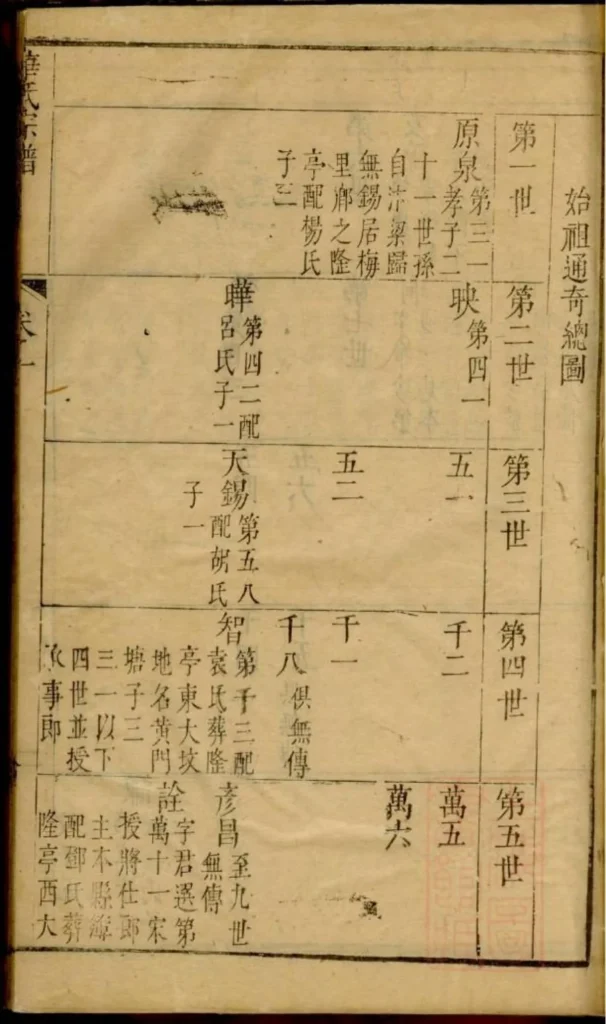 始祖通奇總圖
第一世
原泉第三一
孝子二
十一世孫
自汴梁歸
無錫居梅
里鄉之隆
亭配楊氏
子二
第二世
映第四一
曄第四二配
呂氏子一
第三世
五一
五二
天錫第五八
配胡氏
子一
第四世
千二
千一
千八俱無傳
智第千三配
袁氏葬隆
亭東大坟
地名黃門
塘子三
三一以下
四世並授
承事郎
第五世
萬五
萬六
彥昌至九世
無傳
詮字君選第
萬十一宋
授將仕郎
主本縣簿
配鄧氏葬
隆亭西大
華氏宗譜
卷